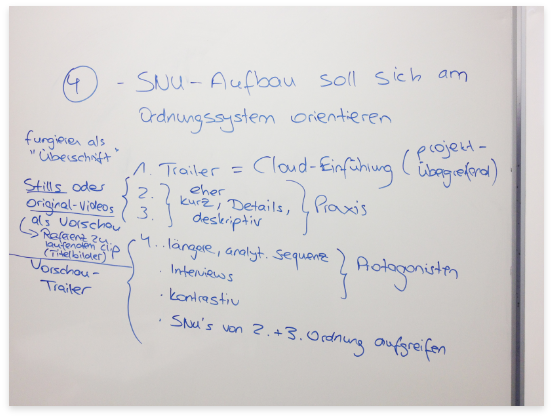 4 - SNU-Aufbau soll sich am
Ordnungssystem orientieren
fungieren als
"Überschrift"
1. Trailer = Cloud-Einführung (projekt-
übergreifend)
Stills oder
original-Videos
als Vorschau
→ Referent zu
laufendem clip
(Titelbilder)
Vorschau-
Trailer
2. eher
3. kurz, Details,
deskriptiv
Praxis
4... längere, analyt. sequenz
· Interviews
· kontrastiv
· SNU's von 2. + 3. Ordnung aufgreifen
Protagonisten